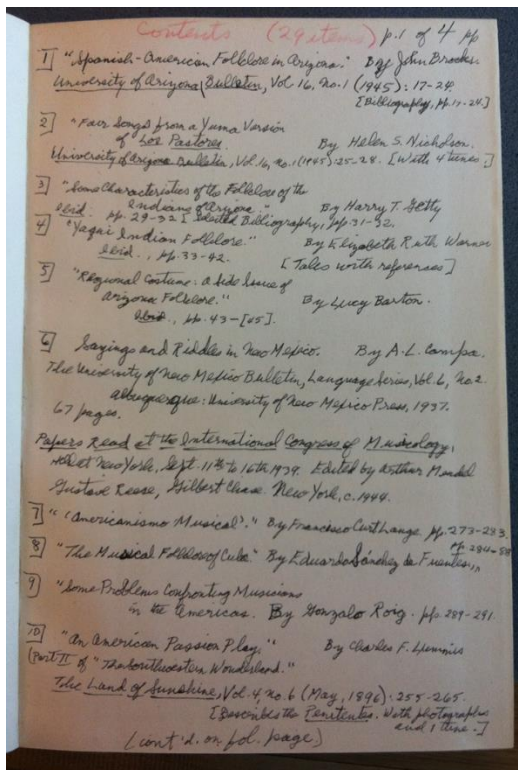 Contents (29 items) p.1 of 4 pp
1] "Spanish-American Folklore in Arizona." By John Brooks.
University of Arizona Bulletin, Vol 16, no. 1 (1945): 17-24.
[Bibliography, pp. 17-24.]
2] "Four Songs from a Yuma Version
of Los Pastores. By Helen S. Nicholson.
University of Arizona Bulletin, Vol. 16, no. 1 (1945) 25-28. [With 4 tunes.]
3] "Some Characteristics of the Folklore of the
Indians of Arizona." By Harry T. Getty
Ibid. pp. 29-32 [Selected Bibliography, pp. 31-32.
4] "Yaqui Indian Folklore." By Elizabeth Ruth Warner
Ibid., pp. 33-42. [Tales with references]
5] "Regional Costume: a Side Issue of
Arizona Folklore." By Lucy Barton.
Ibid., pp. 43-[45].
6] Sayings and Riddles in New Mexico. By A. L. Campa.
The University of New Mexico Bulletin, Language Series, Vol. 6, no. 2.
Albuquerque: University of New Mexico Press, 1937.
67 pages.
Papers Read at the International Congress of Musicology,
Held at New York, Sept. 11th to 16th 1939. Edited by Arthur Mendel
Gustave Reese, Gilbert Chase. New York, c. 1944.
7] "'Americanismo Musical'." By Francisco Curt Lange. pp. 273-283.
8] "The Musical Folklore of Cuba" By Eduardo Sánchez de Fuentes, pp. 284-88
9] "Some Problems Confronting Musicians
in the Americas. By Gonzalo Roig. pp. 289-291.
10] "An American Passion Play." By Charles F. Lummis
(Part II of "The Southwestern Wonderland."
The Land of Sunshine, Vol. 4, no. 6 (May, 1896): 255-265.
[Describes the Penitentes. With photographs
and 1 tune.]
(cont'd. on fol. page)